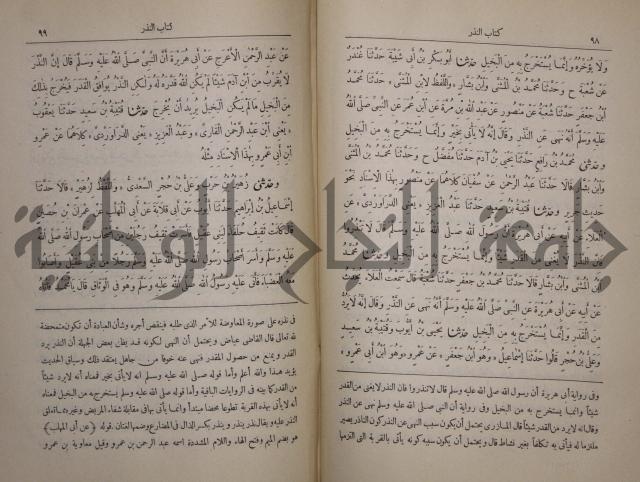 ٩٨
كتاب النذر
ولا يؤخره وإنما يستخرج به من البخيل حدثنا أبو بكر بن أبي شيبة حدثنا غندر
عن شعبة ح وحدثنا محمد بن المثنى وابن بشار، واللفظ لابن المثنى، حدثنا محمد
ابن جعفر حدثنا شعبة عن منصور عن عبد الله بن مرة عن ابن عمر عن النبي صلى الله
عليه وسلم أنه نهى عن النذر وقال إنه لا يأتي بخير وإنما يستخرج به من البخيل
وحدثني محمد بن رافع حدثنا يحيى بن آدم حدثنا مفضل ح وحدثنا محمد بن المثنى
وابن بشار قالا حدثنا عبد الرحمن عن سفيان كلاهما عن منصور بهذا الاسناد نحو
حديث جرير وحدثنا قتيبة بن سعيد حدثنا عبد العزيز، يعني الدراوردي، عن
العلاء عن أبيه عن أبي هريرة أن رسول الله صلى الله عليه وسلم قال لا تنذروا
فان النذر لا يغني من القدر شيئا وإنما يستخرج به من البخيل وحدثنا محمد
ابن المثنى وابن بشار قالا حدثنا محمد بن جعفر حدثنا شعبة قال سمعت العلاء يحدث
عن أبيه عن أبي هريرة عن النبي صلى الله عليه وسلم أنه نهى عن النذر وقال إنه لا يرد
من القدر وإنما يستخرج به من البخيل حدثنا يحيى بن أيوب وقتيبة بن سعيد
وعلي بن حجر قالوا حدثنا إسماعيل، وهو ابن جعفر، عن عمرو، وهو ابن أبي عمرو،
وفي رواية أبي هريرة أن رسول الله صلى الله عليه وسلم قال لا تنذروا فان النذر لا يغني من القدر
شيئا وانما يستخرج به من البخيل وفي رواية أن النبي صلى الله عليه وسلم نهى عن النذر
وقال انه لا يرد من القدر شيئا قال المازري يحتمل أن يكون سبب النهى عن النذر كون الناذر يصير
ملتزما له فيأتي به تكلفا بغير نشاط قال ويحتمل أن يكون سببه كونه يأتي بالقربة التي التزمها
كتاب النذر
٩٩
عن عبد الرحمن الأعرج عن أبي هريرة أن النبي صلى الله عليه وسلم قال إن النذر
لا يقرب من ابن آدم شيئا لم يكن الله قدره له ولكن النذر يوافق القدر فيخرج بذلك
من البخيل ما لم يكن البخيل يريد أن يخرج حدثنا قتيبة بن سعيد حدثنا يعقوب
، يعني ابن عبد الرحمن القاري، وعبد العزيز، يعني الدراوردي، كلاهما عن عمرو
ابن أبي عمرو بهذا الاسناد مثله
وحدثني زهير بن حرب وعلي بن حجر السعدي، واللفظ لزهير، قالا حدثنا
إسماعيل بن إبراهيم حدثنا أيوب عن أبي قلابة عن أبي المهلب عن عمران بن حصين
قال كانت ثقيف حلفاء لبني عقيل فأسرت ثقيف رجلين من أصحاب رسول الله صلى الله
عليه وسلم وأسر أصحاب رسول الله صلى الله عليه وسلم رجلا من بني عقيل وأصابوا
معه العضباء فأتى عليه رسول الله صلى الله عليه وسلم وهو في الوثاق قال يا محمد فأتاه
في نذره على صورة المعاوضة للأمر الذي طلبه فينقص أجره وشأن العبادة أن تكون متمحضة
لله تعالى قال القاضي عياض ويحتمل أن النهى لكونه قد يظن بعض الجهلة أن النذر يرد
القدر ويمنع من حصول المقدر فنهى عنه خوفا من جاهل يعتقد ذلك وسياق الحديث
يؤيد هذا والله أعلم وأما قوله صلى الله عليه وسلم انه لا يأتي بخير فمعناه أنه لا يرد شيئا
من القدر كما بينه في الروايات الباقية وأما قوله صلى الله عليه وسلم يستخرج به من البخيل فمعناه
أنه لا يأتي بهذه القربة تطوعا محضا مبتدأ وانما يأتي بها في مقابلة شفاء المريض وغيره مما تعلق
النذر عليه ويقال نذر ينذر وينذر بكسر الذال في المضارع وضمها لغتان. قوله (عن أبي المهلب)
هو بضم الميم وفتح الهاء واللام المشددة اسمه عبد الرحمن بن عمرو وقيل معاوية بن عمرو
جامعة النجاح الوطنية